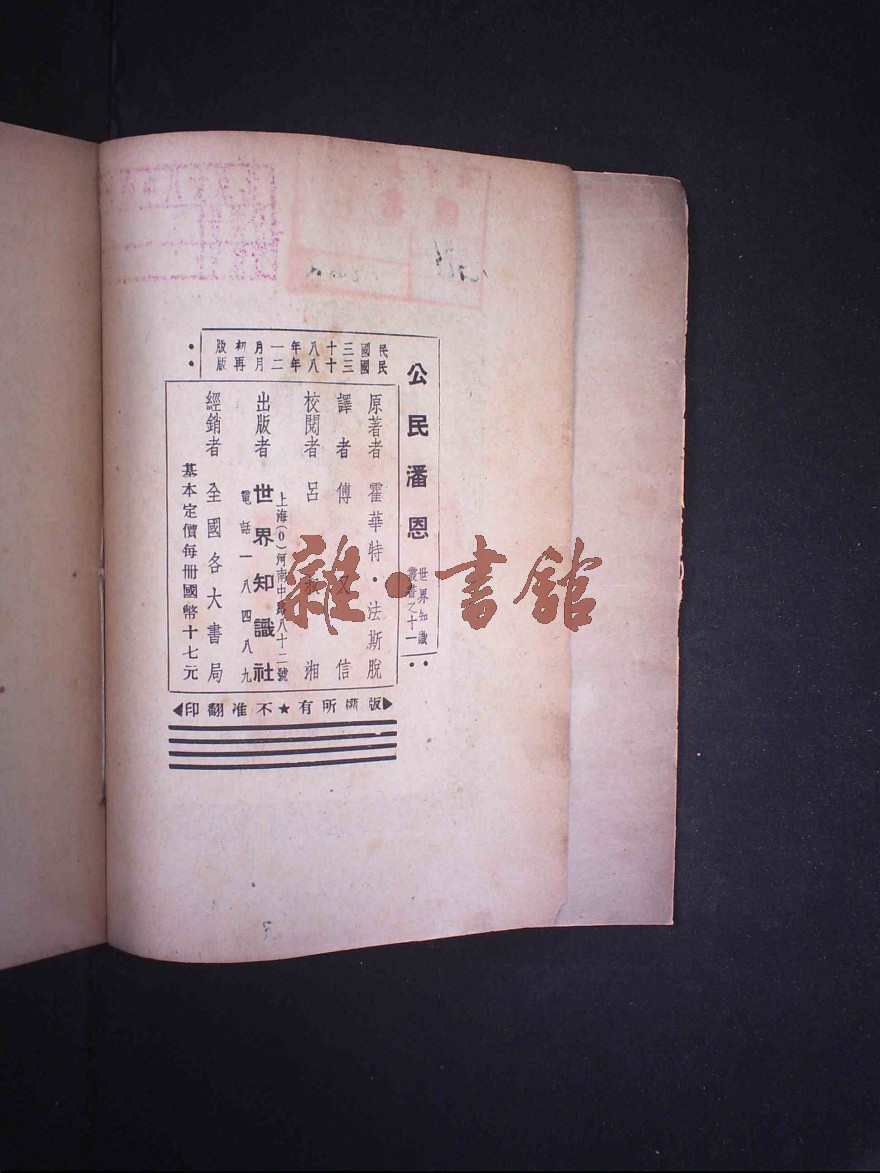 公民潘恩
世界知識
叢書之十一
民國三十八年一月初版
民國三十八年二月再版
原著者 霍華特・法斯脫
譯者 傅又信
校閱者 呂叔湘
上海(0)河南中路八十二號
出版者 世界知識社
電話一八四八九
經銷者 全國各大書局
基本定價每冊國幣十七元
版權所有★不准翻印
雜・書館